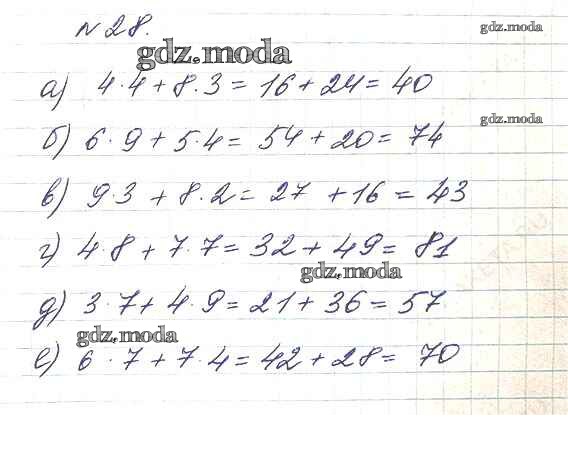 № 28.
gdz.moda
gdz.moda
а) 4·4 + 8·3 = 16 + 24 = 40
gdz.moda
б) 6·9 + 5·4 = 54 + 20 = 74
в) 9·3 + 8·2 = 27 + 16 = 43
г) 4·8 + 7·7 = 32 + 49 = 81
gdz.moda
д) 3·7 + 4·9 = 21 + 36 = 57
gdz.moda
е) 6·7 + 7·4 = 42 + 28 = 70